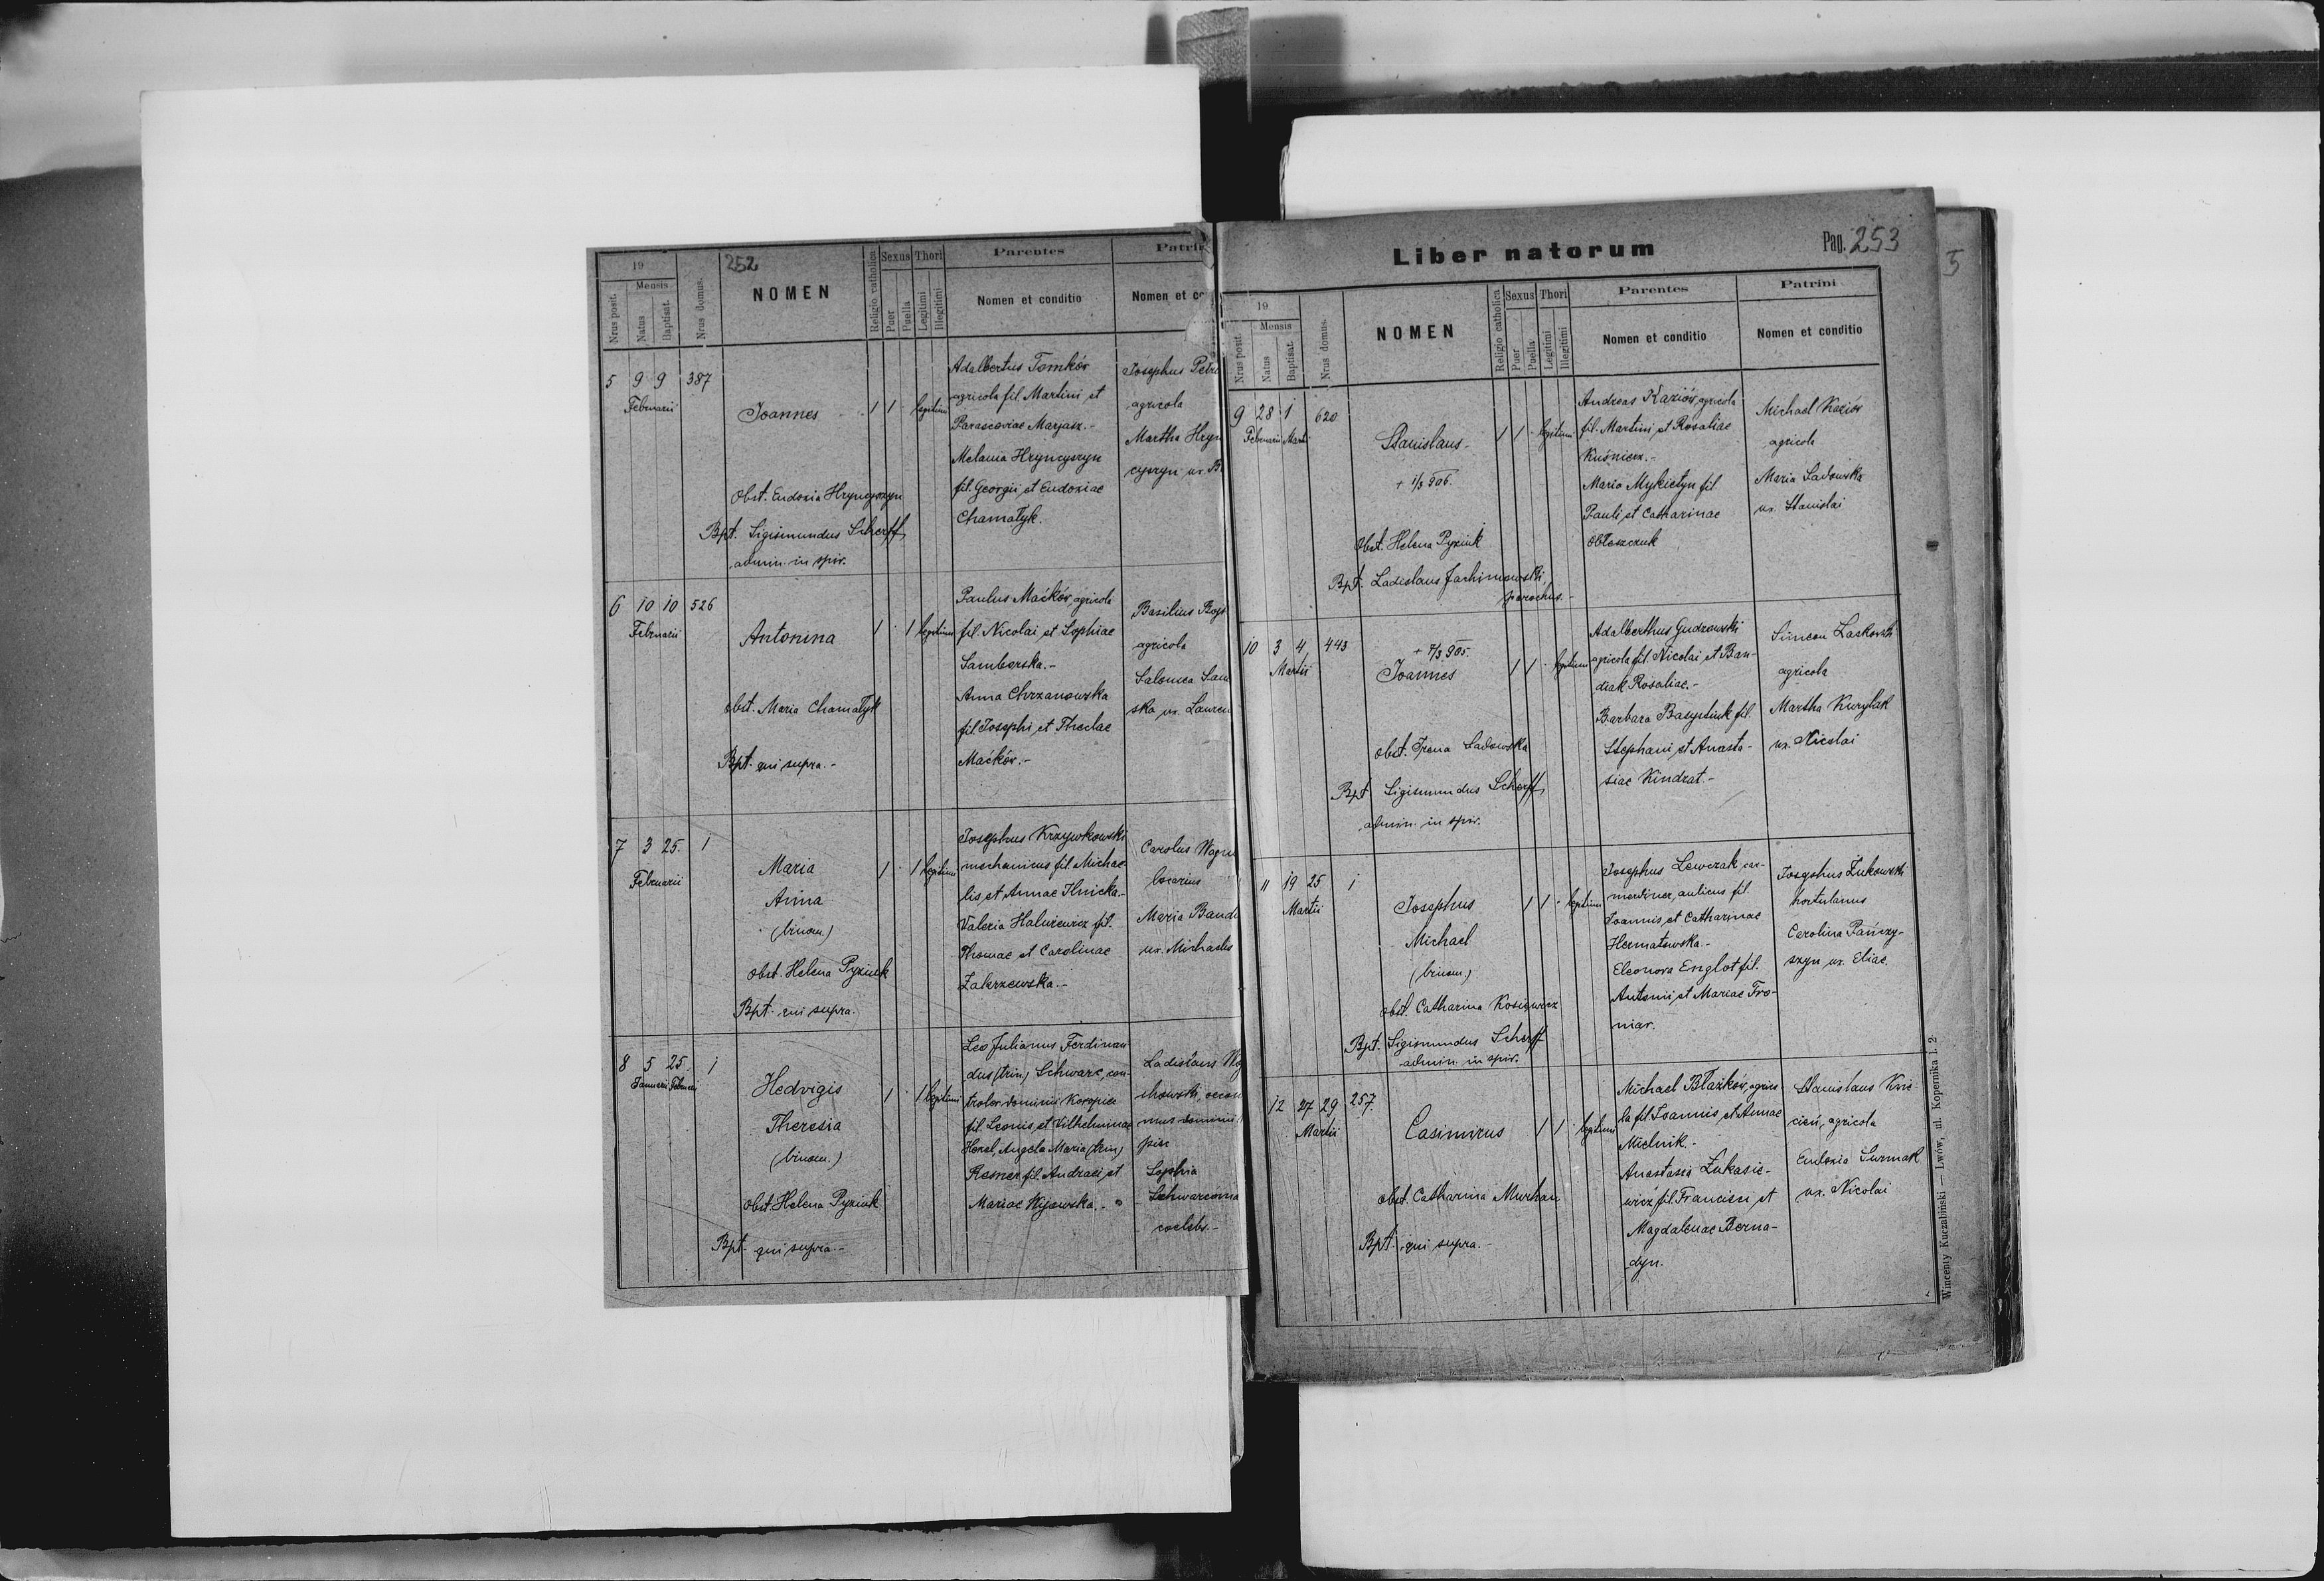 252
19
Mensis
Nrus posit.
Natus
Baptisat.
Nrus domus.
NOMEN
Religio catholica
Sexus
Puer
Puella
Thori
Legitimi
Illegitimi
Parentes
Nomen et conditio
Patrin
Nomen et co
5 9 9 387
Februarii
Joannes
1 1 legitimi
Obst. Eudoxia Hryncyszyn
Bpt. Sigismundus Scherff
admin. in spir.
Adalbertus Tomków
agricola fil. Martini et
Parasceviae Maryasz.-
Melania Hryncyszyn
fil. Georgii et Eudoxiae
Chamatyk.
Josephus Petr
agricola
Martha Hryn
cyszyn ux. B
6 10 10 526
Februarii
Antonina
1 1 legitimi
obst. Maria Chamatyk
Bpt. qui supra.-
Paulus Maćków, agricola
fil. Nicolai et Sophiae
Samborska.-
Anna Chrzanowska
fil. Josephi et Theclae
Maćków.-
Basilius
agricola
Salomea Sam
ska ux. Lauren
7 3 25. 1
Februarii
Maria
Anna
(binom.)
1 1 legitimi
obst. Helena Pyziuk
Bpt. qui supra.
Josephus Krzywkowski
mechanicus fil. Michae-
lis et Annae Ilnicka.-
Valeria Halurewicz fil.
Thomae et Carolinae
Zakrzewska.-
Carolus Wagn
Maria Band
ux. Michaelis
8 5 25. 1
Januarii Februarii
Hedvigis
Theresia
(binom.)
1 1 legitimi
obst. Helena Pyziuk
Bpt. qui supra.-
Leo Julianus Ferdinan
dus (trin.) Schwarc, con-
trolor dominii Koropiec
fil. Leonis et Vilhelminae
Hoxel, Angela Maria (trin)
Resner fil. Andraei et
Mariae Kijowska.-
Ladislaus
chowski, oecon
mus dominii
piec
Sophia
Schwarcówna
coelebs.-
Liber natorum
Pag. 253
5
19
Mensis
Nrus posit.
Natus
Baptisat.
Nrus domus.
NOMEN
Religio catholica
Sexus
Puer
Puella
Thori
Legitimi
Illegitimi
Parentes
Nomen et conditio
Patrini
Nomen et conditio
9 28 1 620
Februarii Martii
Stanislaus
+ 1/3 906.
1 1 legitimi
Obst. Helena Pyziuk
Bpt. Ladislaus Jachimowski,
parochus.-
Andreas Kaziów, agricola
fil. Martini et Rosaliae
Kuśnierz.-
Maria Mykietyn fil
Pauli et Catharinae
Obleszczuk
Michael Kaziów
agricola
Maria Sadowska
ux. Stanislai
10 3 4 443
Martii
+ 7/3 905.
Joannes
1 1 legitimi
obst. Irena Sadowska
Bpt Sigismundus Scherff
admin. in spir.
Adalberthus Gudzowski
agricola fil. Nicolai et Ban-
diak Rosaliae.-
Barbara Basystiuk fil.
Stephani et Anasta-
siae Kindrat.-
Simeon Laskowski
agricola
Martha Kurylak
ux. Nicolai
11 19 25 1
Martii
Josephus
Michael
(binom.)
1 1 legitimi
obst. Catharina Kosiewicz
Bpt. Sigismundus Scherff
admin. in spir.
Josephus Lewczak car-
merdiner, aulicus fil.
Joannis et Catharinae
Hermatowska.-
Eleonora Englot fil.
Antonii et Mariae Fro-
niar.
Josephus Żukowski
hortulanus
Carolina Pańczy-
szyn ux. Eliae.
12 27 29 257.
Martii
Casimirus
1 1 legitimi
obst. Catharina Murhan
Bpt. qui supra.-
Michael Błażków, agrico-
la fil. Joannis et Annae
Mielnik.-
Anastasia Łukasie-
wicz fil. Francisci et
Magdalenae Berna-
dyn.
Stanislaus Kwie
cień, agricola
Eudoxia Surmak
ux. Nicolai
Wincenty Kuczabiński — Lwów, ul. Kopernika l. 2